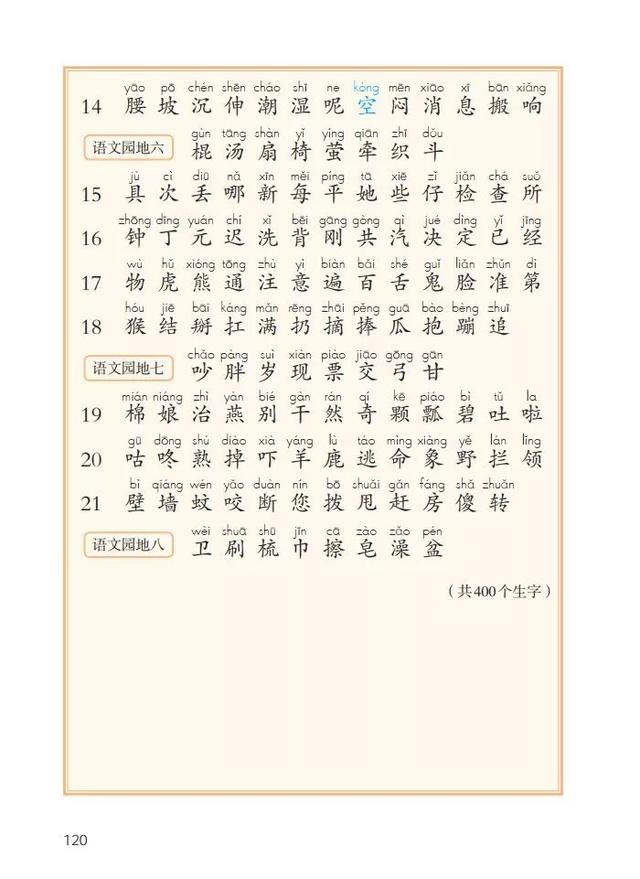 yāo pō chén shēn cháo shī ne kòng mēn xiāo xī bān xiǎng
14 腰 坡 沉 伸 潮 湿 呢 空 闷 消 息 搬 响
gùn tāng shàn yǐ yíng qiān zhī dǒu
语文园地六 棍 汤 扇 椅 萤 牵 织 斗
jù cì diū nǎ xīn měi píng tā xiē zǐ jiǎn chá suǒ
15 具 次 丢 哪 新 每 平 她 些 仔 检 查 所
zhōng dīng yuán chí xǐ bēi gāng gòng qì jué dìng yǐ jīng
16 钟 丁 元 迟 洗 背 刚 共 汽 决 定 已 经
wù hǔ xióng tōng zhù yì biàn bǎi shé guǐ liǎn zhǔn dì
17 物 虎 熊 通 注 意 遍 百 舌 鬼 脸 准 第
hóu jiē bāi káng mǎn rēng zhāi pěng guā bào bèng zhuī
18 猴 结 掰 扛 满 扔 摘 捧 瓜 抱 蹦 追
chǎo pàng suì xiàn piào jiāo gōng gān
语文园地七 吵 胖 岁 现 票 交 弓 甘
mián niáng zhì yàn bié gàn rán qí kē piáo bì tǔ la
19 棉 娘 治 燕 别 干 然 奇 颗 瓢 碧 吐 啦
gū dōng shú diào xià yáng lù táo mìng xiàng yě lán lǐng
20 咕 咚 熟 掉 吓 羊 鹿 逃 命 象 野 拦 领
bì qiáng wén yǎo duàn nín bō shuǎi gǎn fáng shǎ zhuǎn
21 壁 墙 蚊 咬 断 您 拨 甩 赶 房 傻 转
wèi shuā shū jīn cā zào zǎo pén
语文园地八 卫 刷 梳 巾 擦 皂 澡 盆
（共400个生字）
120